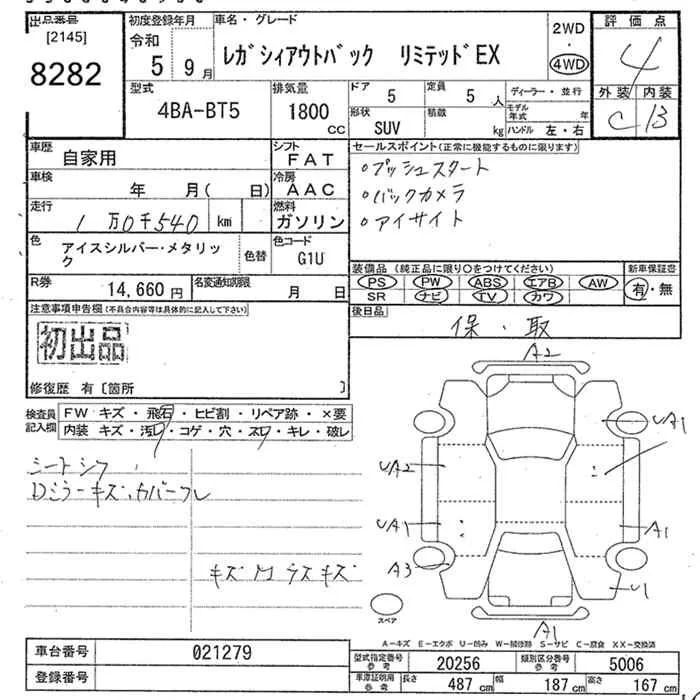 出品番号
[2145]
8282
初度登録年月
令和
5 9月
車名・グレード
レガシィアウトバック リミテッドEX
2WD
・
4WD
評価点
4
外装 内装
C B
型式
4BA-BT5
排気量
1800
cc
ドア
5
定員
5 人
形状
SUV
積載
kg
ディーラー・並行
モデル年式 年
ハンドル 左・右
車歴
自家用
シフト
FAT
車検
年 月( 日)
冷房
AAC
走行
1万0千540 km
燃料
ガソリン
色
アイスシルバー・メタリック
色替
色コード
G1U
R券
14,660 円
名変通知期限
月 日
セールスポイント(正常に機能するものに限ります)
○プッシュスタート
○バックカメラ
○アイサイト
装備品(純正品に限り○をつけてください)
PS PW ABS エアB AW
SR ナビ TV カワ
新車保証書
有・無
後日品
保・取
注意事項申告欄(不具合内容等は具体的に記入して下さい)
初出品
修復歴 有〔箇所 〕
検査員記入欄
FW キズ・飛石・ヒビ割・リペア跡・×要
内装 キズ・汚レ・コゲ・穴・スレ・キレ・破レ
シートシワ
Dミラーキズ、カバーワレ
キズ
キズ
A2
UA1
UA2
UA1
A1
A3
U1
A1
スペア
A-キズ E-エクボ U-凹み W-補修跡 S-サビ C-腐食 XX-交換済
車台番号
021279
登録番号
型式指定番号
参考
20256
類別区分番号
参考
5006
車庫証明用
参考
長さ 487 cm 幅 187 cm 高さ 167 cm